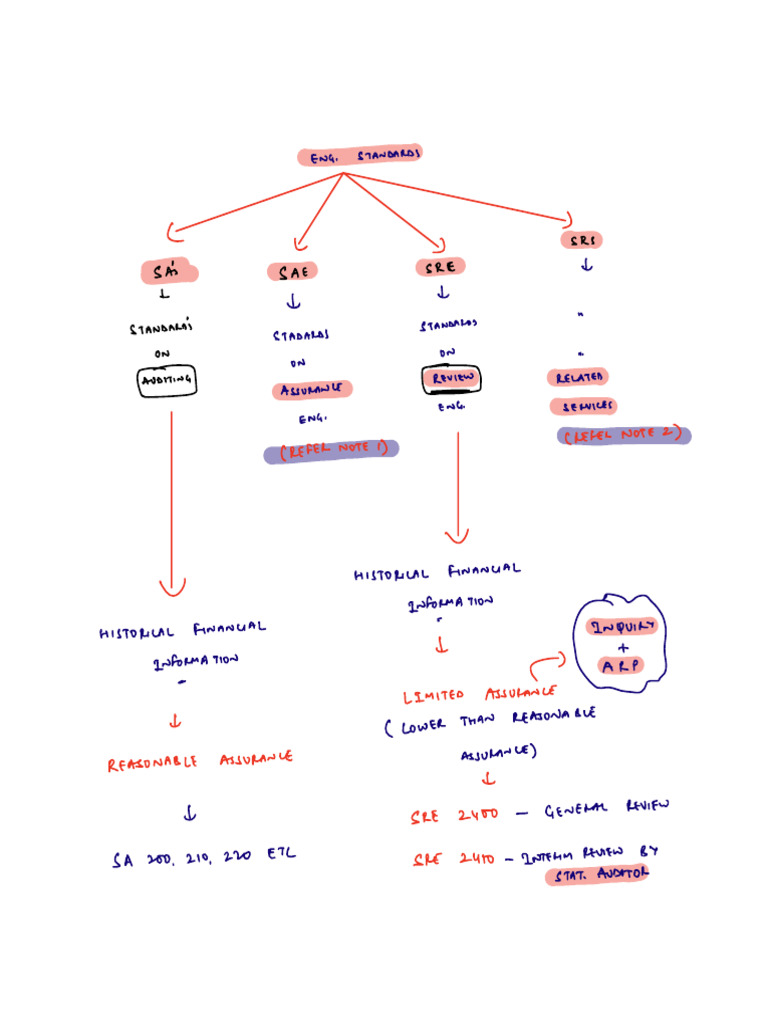 ENG. STANDARDS
SA's
↓
STANDARD'S
ON
AUDITING
HISTORICAL FINANCIAL
INFORMATION
↓
REASONABLE ASSURANCE
↓
SA 200, 210, 220 ETC
SAE
↓
STADARDS
ON
ASSURANCE
ENG.
(REFER NOTE 1)
SRE
↓
STANDARDS
ON
REVIEW
ENG.
HISTORICAL FINANCIAL
INFORMATION
↓
LIMITED ASSURANCE
(LOWER THAN REASONABLE
ASSURANCE)
↓
SRE 2400 – GENERAL REVIEW
SRE 2410 – INTERIM REVIEW BY
STAT. AUDITOR
INQUIRY
+
ARP
SRS
↓
"
"
RELATED
SERVICES
(REFER NOTE 2)